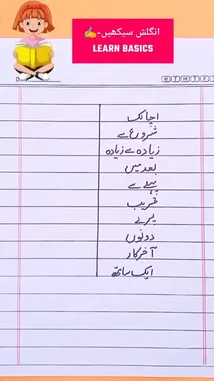 انگلش سیکھیں-✍️
LEARN BASICS
اچانک
شروع سے
زیادہ سے زیادہ
بعد میں
پہلے سے
قریب
دونوں
آخرکار
ایک ساتھ